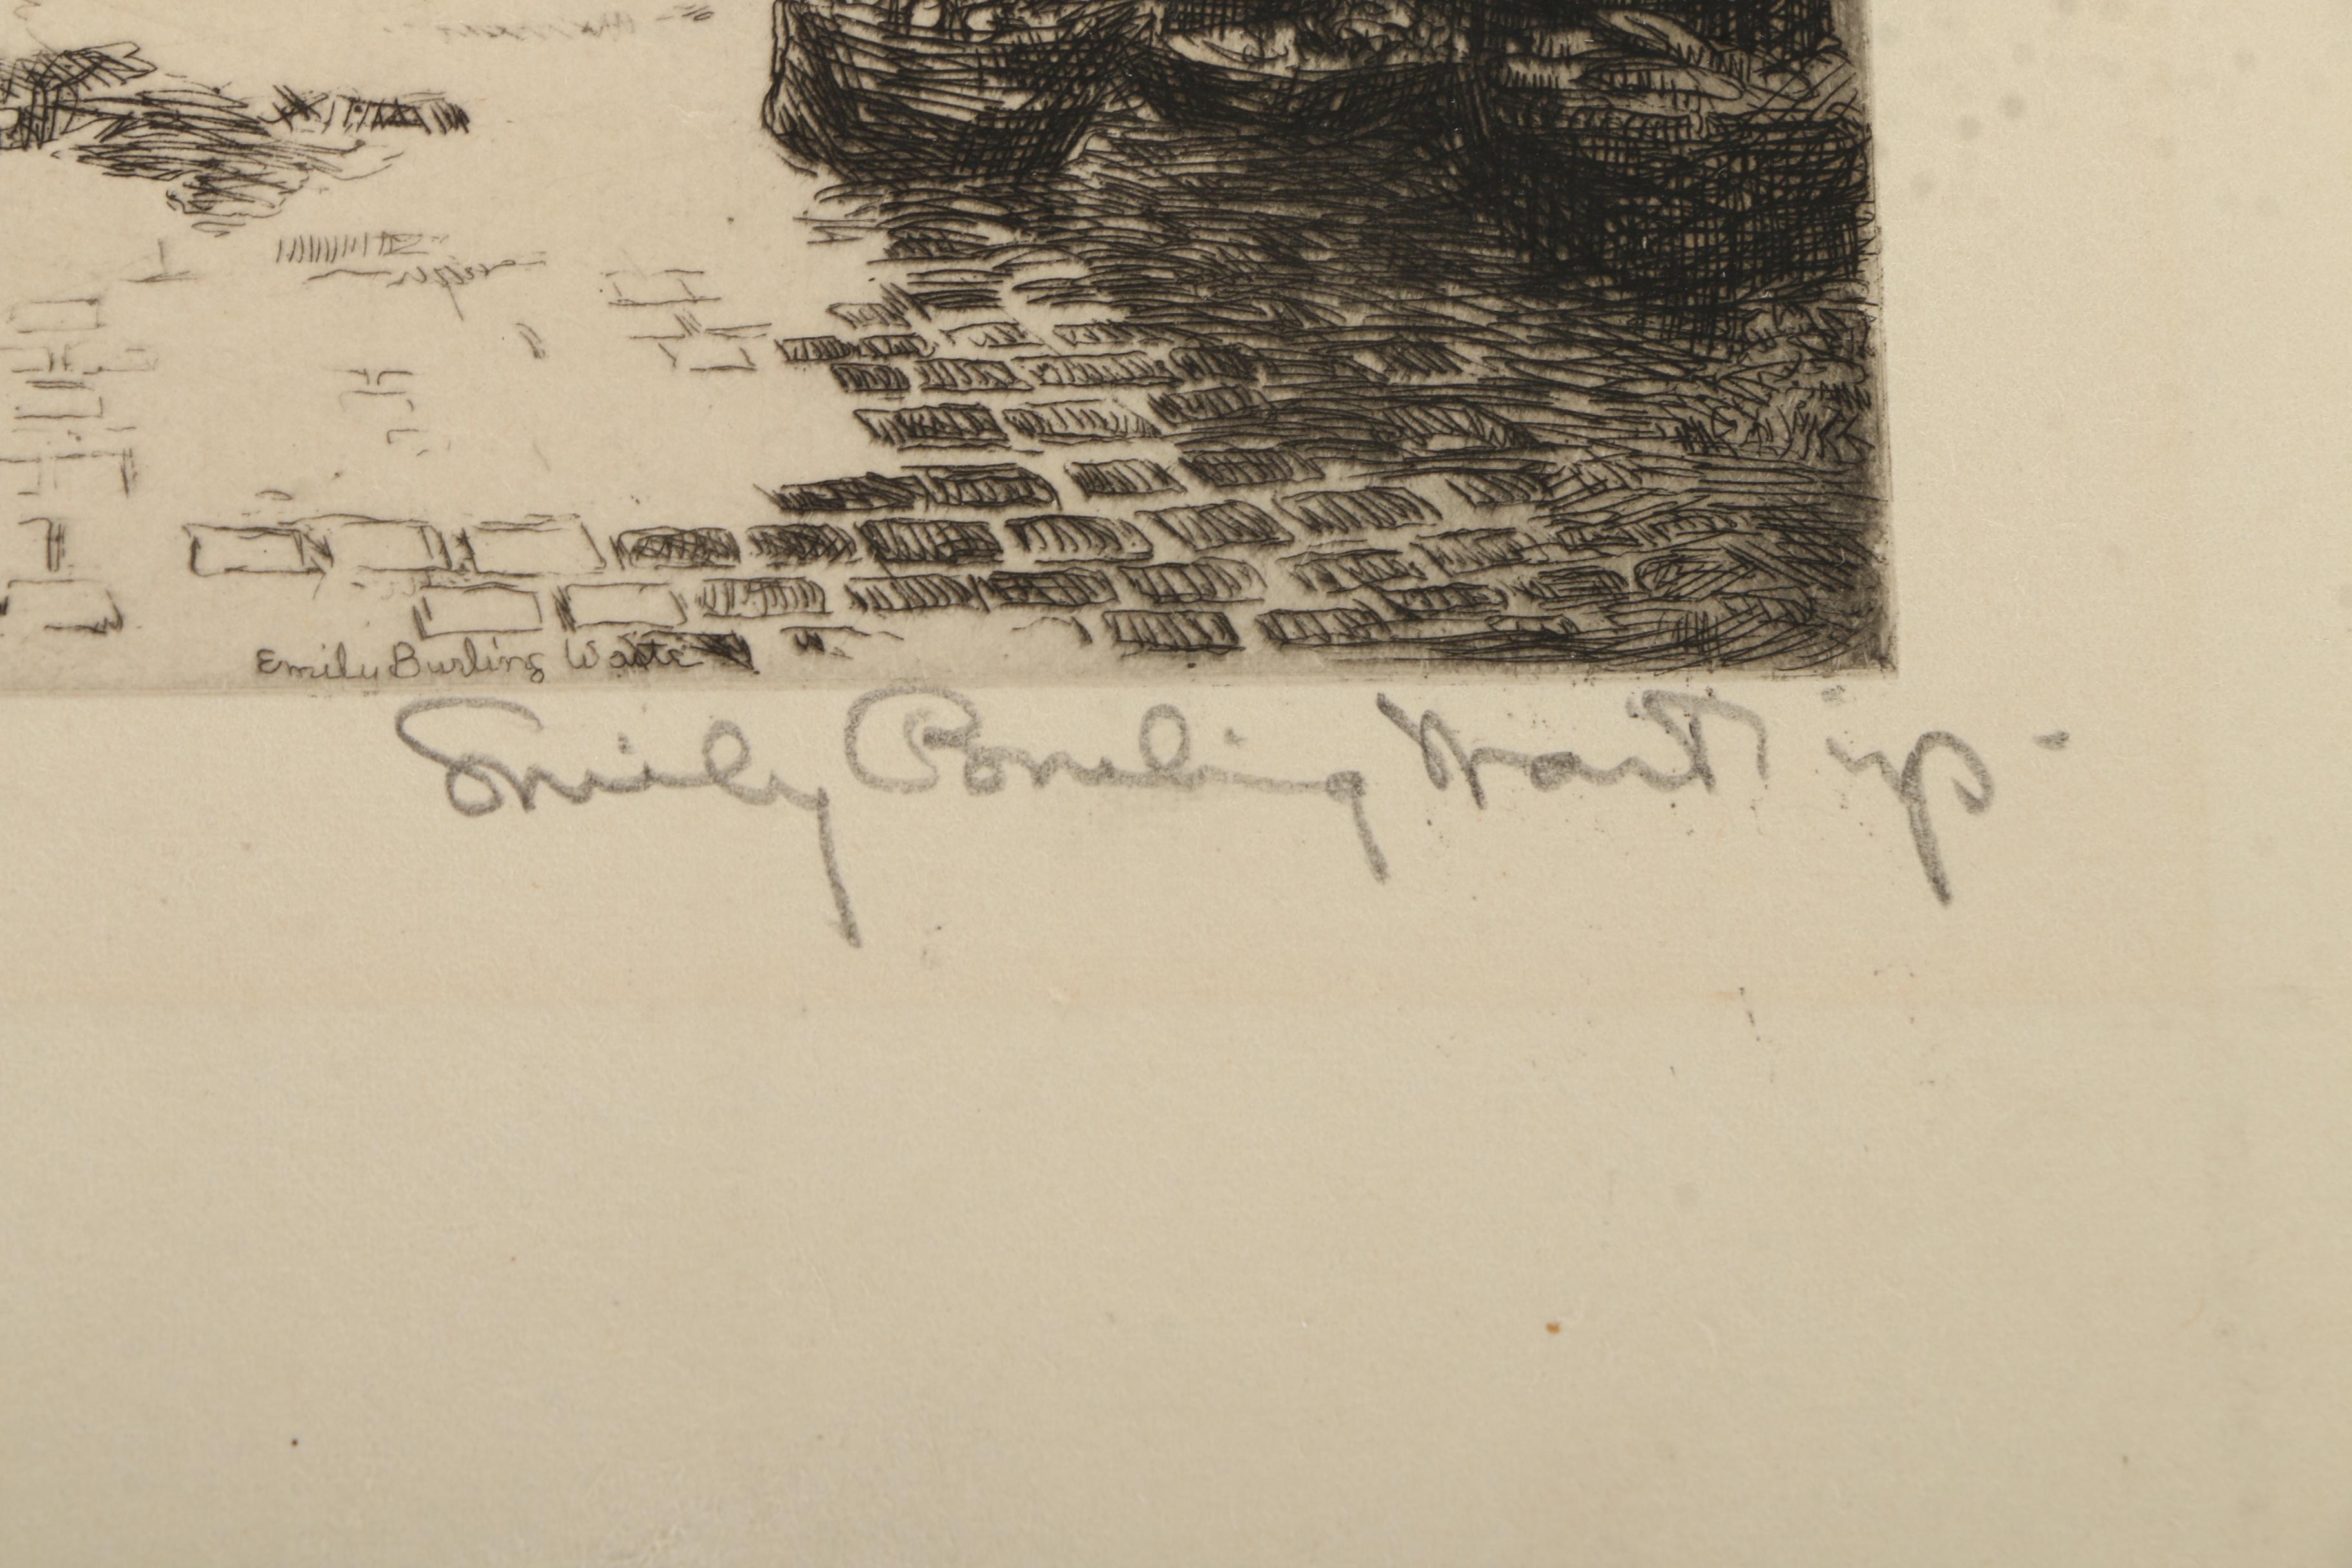 Emily Burling Waite
Emily Burling Waite imp-